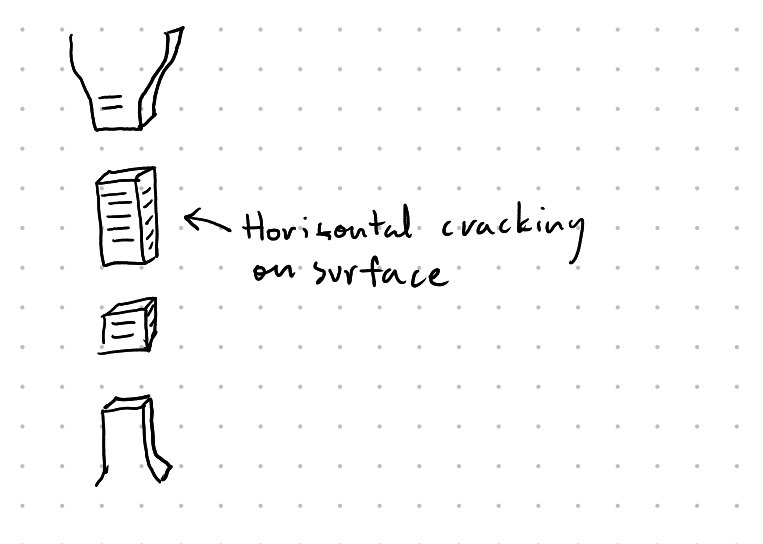 Horizontal cracking
on surface